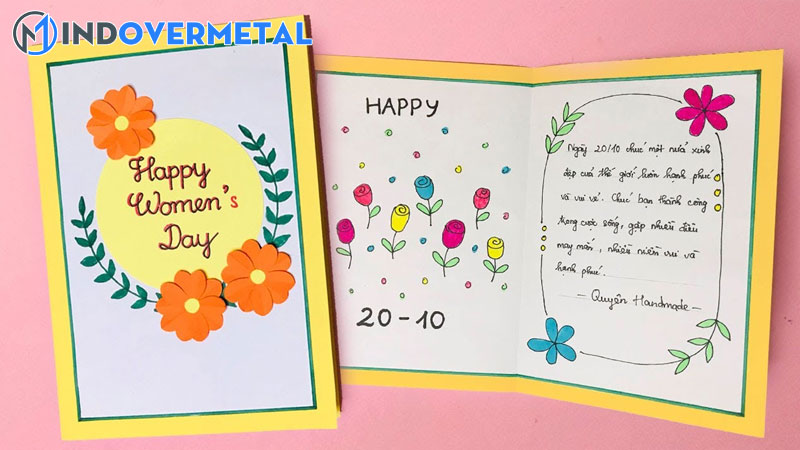 MINDOVERMETAL
Happy
Women's
Day
HAPPY
20-10
Ngày 20/10 chúc một nửa xinh
đẹp của thế giới luôn hạnh phúc
và vui vẻ. Chúc bạn thành công
trong cuộc sống, gặp nhiều điều
may mắn, nhiều niềm vui và
hạnh phúc.
— Quyên Handmade —